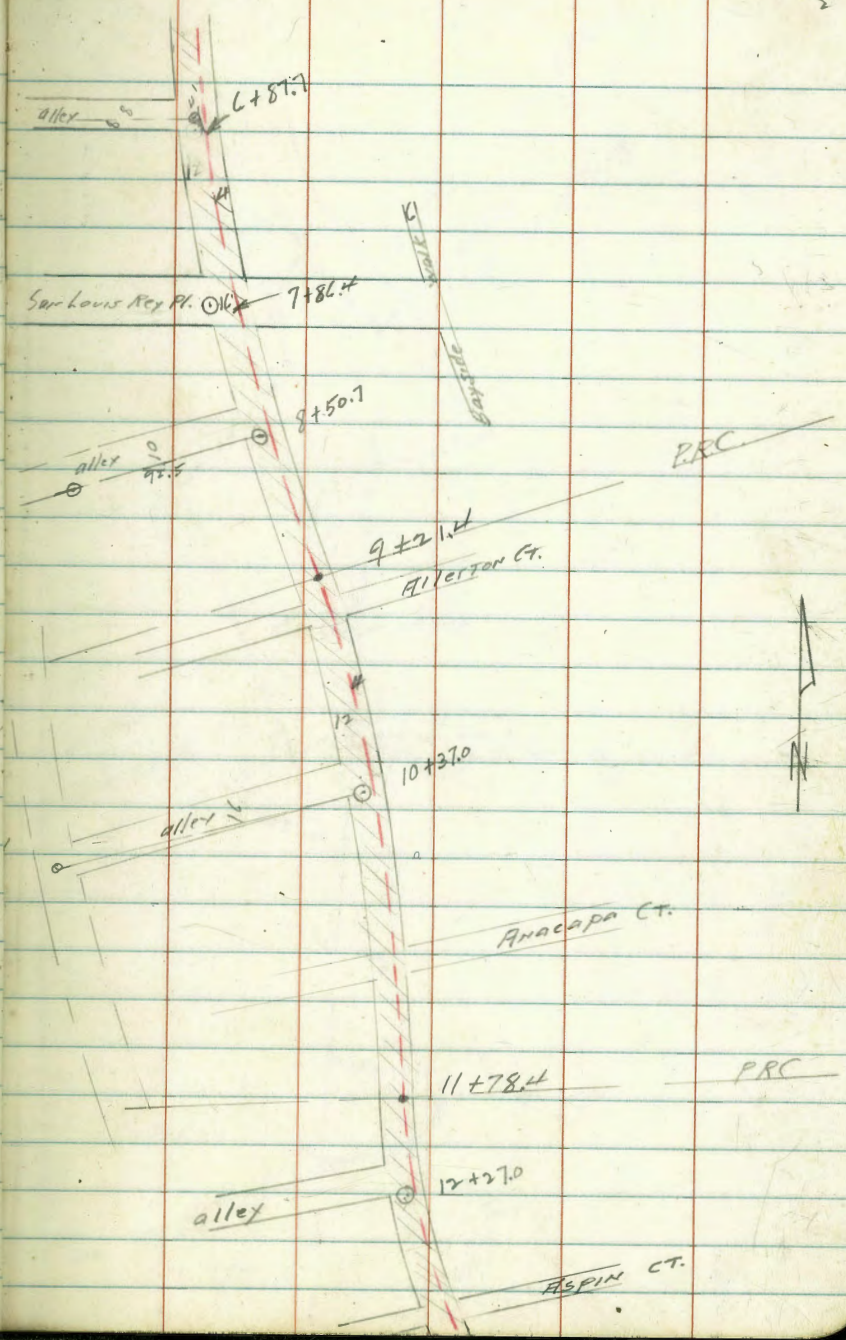 2
6+87.7
alley 8 8
12
4
San Louis Rey Pl. 16 7+86.4
Bayside Walk
8+50.7
alley 10
92.5
P.R.C.
9+21.4
Allerton CT.
4
12
10+37.0
alley 16
N
Anacapa CT.
11+78.4
PRC
12+27.0
alley
Aspin CT.